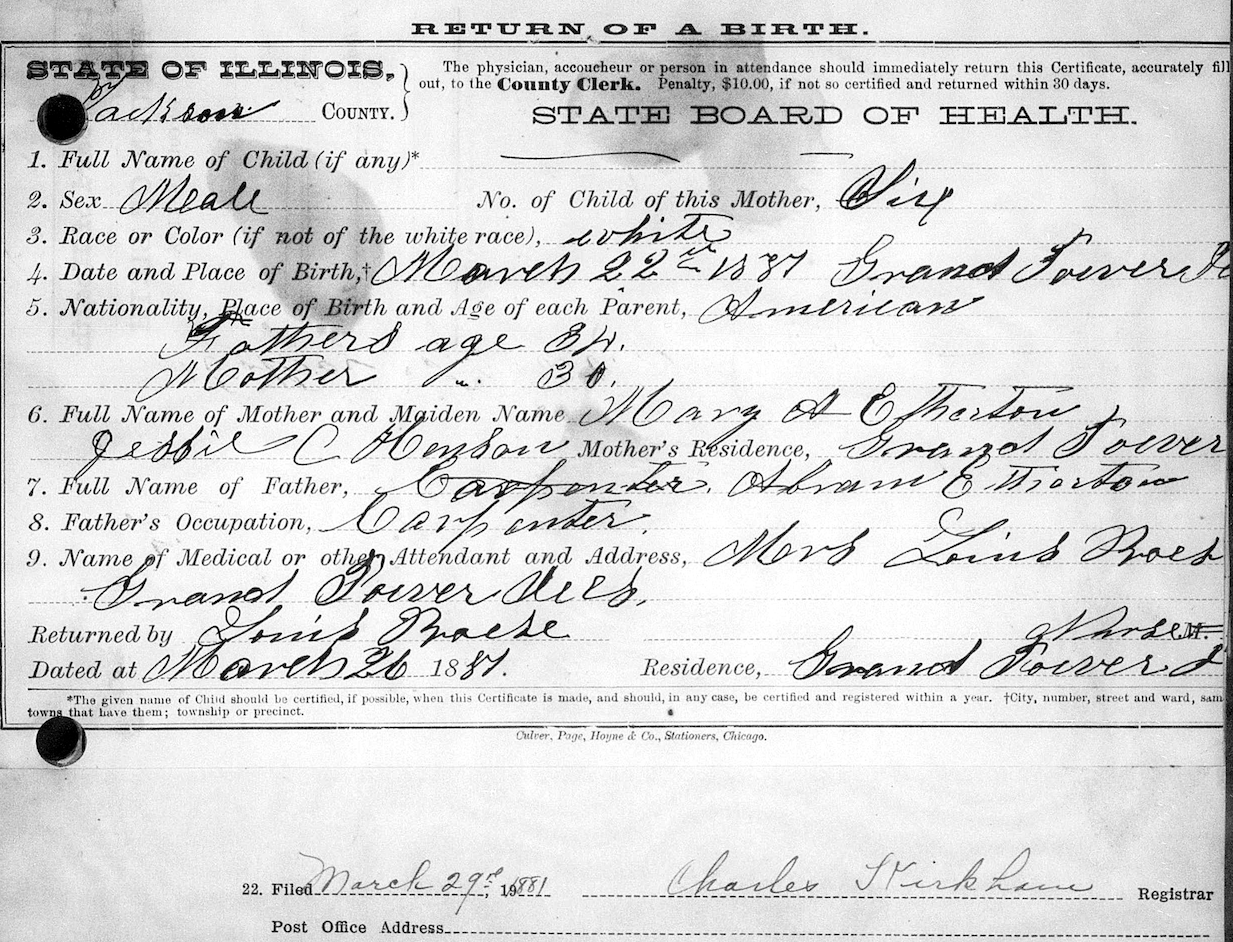 RETURN OF A BIRTH.
STATE OF ILLINOIS,
Jackson COUNTY.
The physician, accoucheur or person in attendance should immediately return this Certificate, accurately fill
out, to the County Clerk. Penalty, $10.00, if not so certified and returned within 30 days.
STATE BOARD OF HEALTH.
1. Full Name of Child (if any)*
2. Sex Meale No. of Child of this Mother, Six
3. Race or Color (if not of the white race), white
4. Date and Place of Birth,† March 22 1881 Grand Tower
5. Nationality, Place of Birth and Age of each Parent, American
Fathers age 34.
Mother " 30.
6. Full Name of Mother and Maiden Name Mary A Etherton
Jessie C Henson Mother's Residence, Grand Tower
7. Full Name of Father, Carpenter. Abram Etherton
8. Father's Occupation, Carpenter.
9. Name of Medical or other Attendant and Address, Mrs Louis
Grand Tower Ills.
Returned by Louis Nurse M.
Dated at March 26 1881. Residence, Grand Tower
*The given name of Child should be certified, if possible, when this Certificate is made, and should, in any case, be certified and registered within a year. †City, number, street and ward, sam
towns that have them; township or precinct.
Culver, Page, Hoyne & Co., Stationers, Chicago.
22. Filed March 29, 1881 Charles Kirkham Registrar
Post Office Address